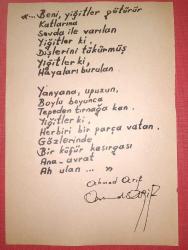 «... Beni, yiğitler götürür
Katlarına
Sevda ile varılan
Yiğitler ki,
Dişlerini tükürmüş
Yiğitler ki,
Hayaları burulan

Yanyana, upuzun,
Boylu boyunca
Tepeden tırnağa kan.
Yiğitler ki,
Herbiri bir parça vatan.
Gözlerinde
Bir küfür kasırgası
Ana-avrat
Ah ulan ... »
Ahmed Arif